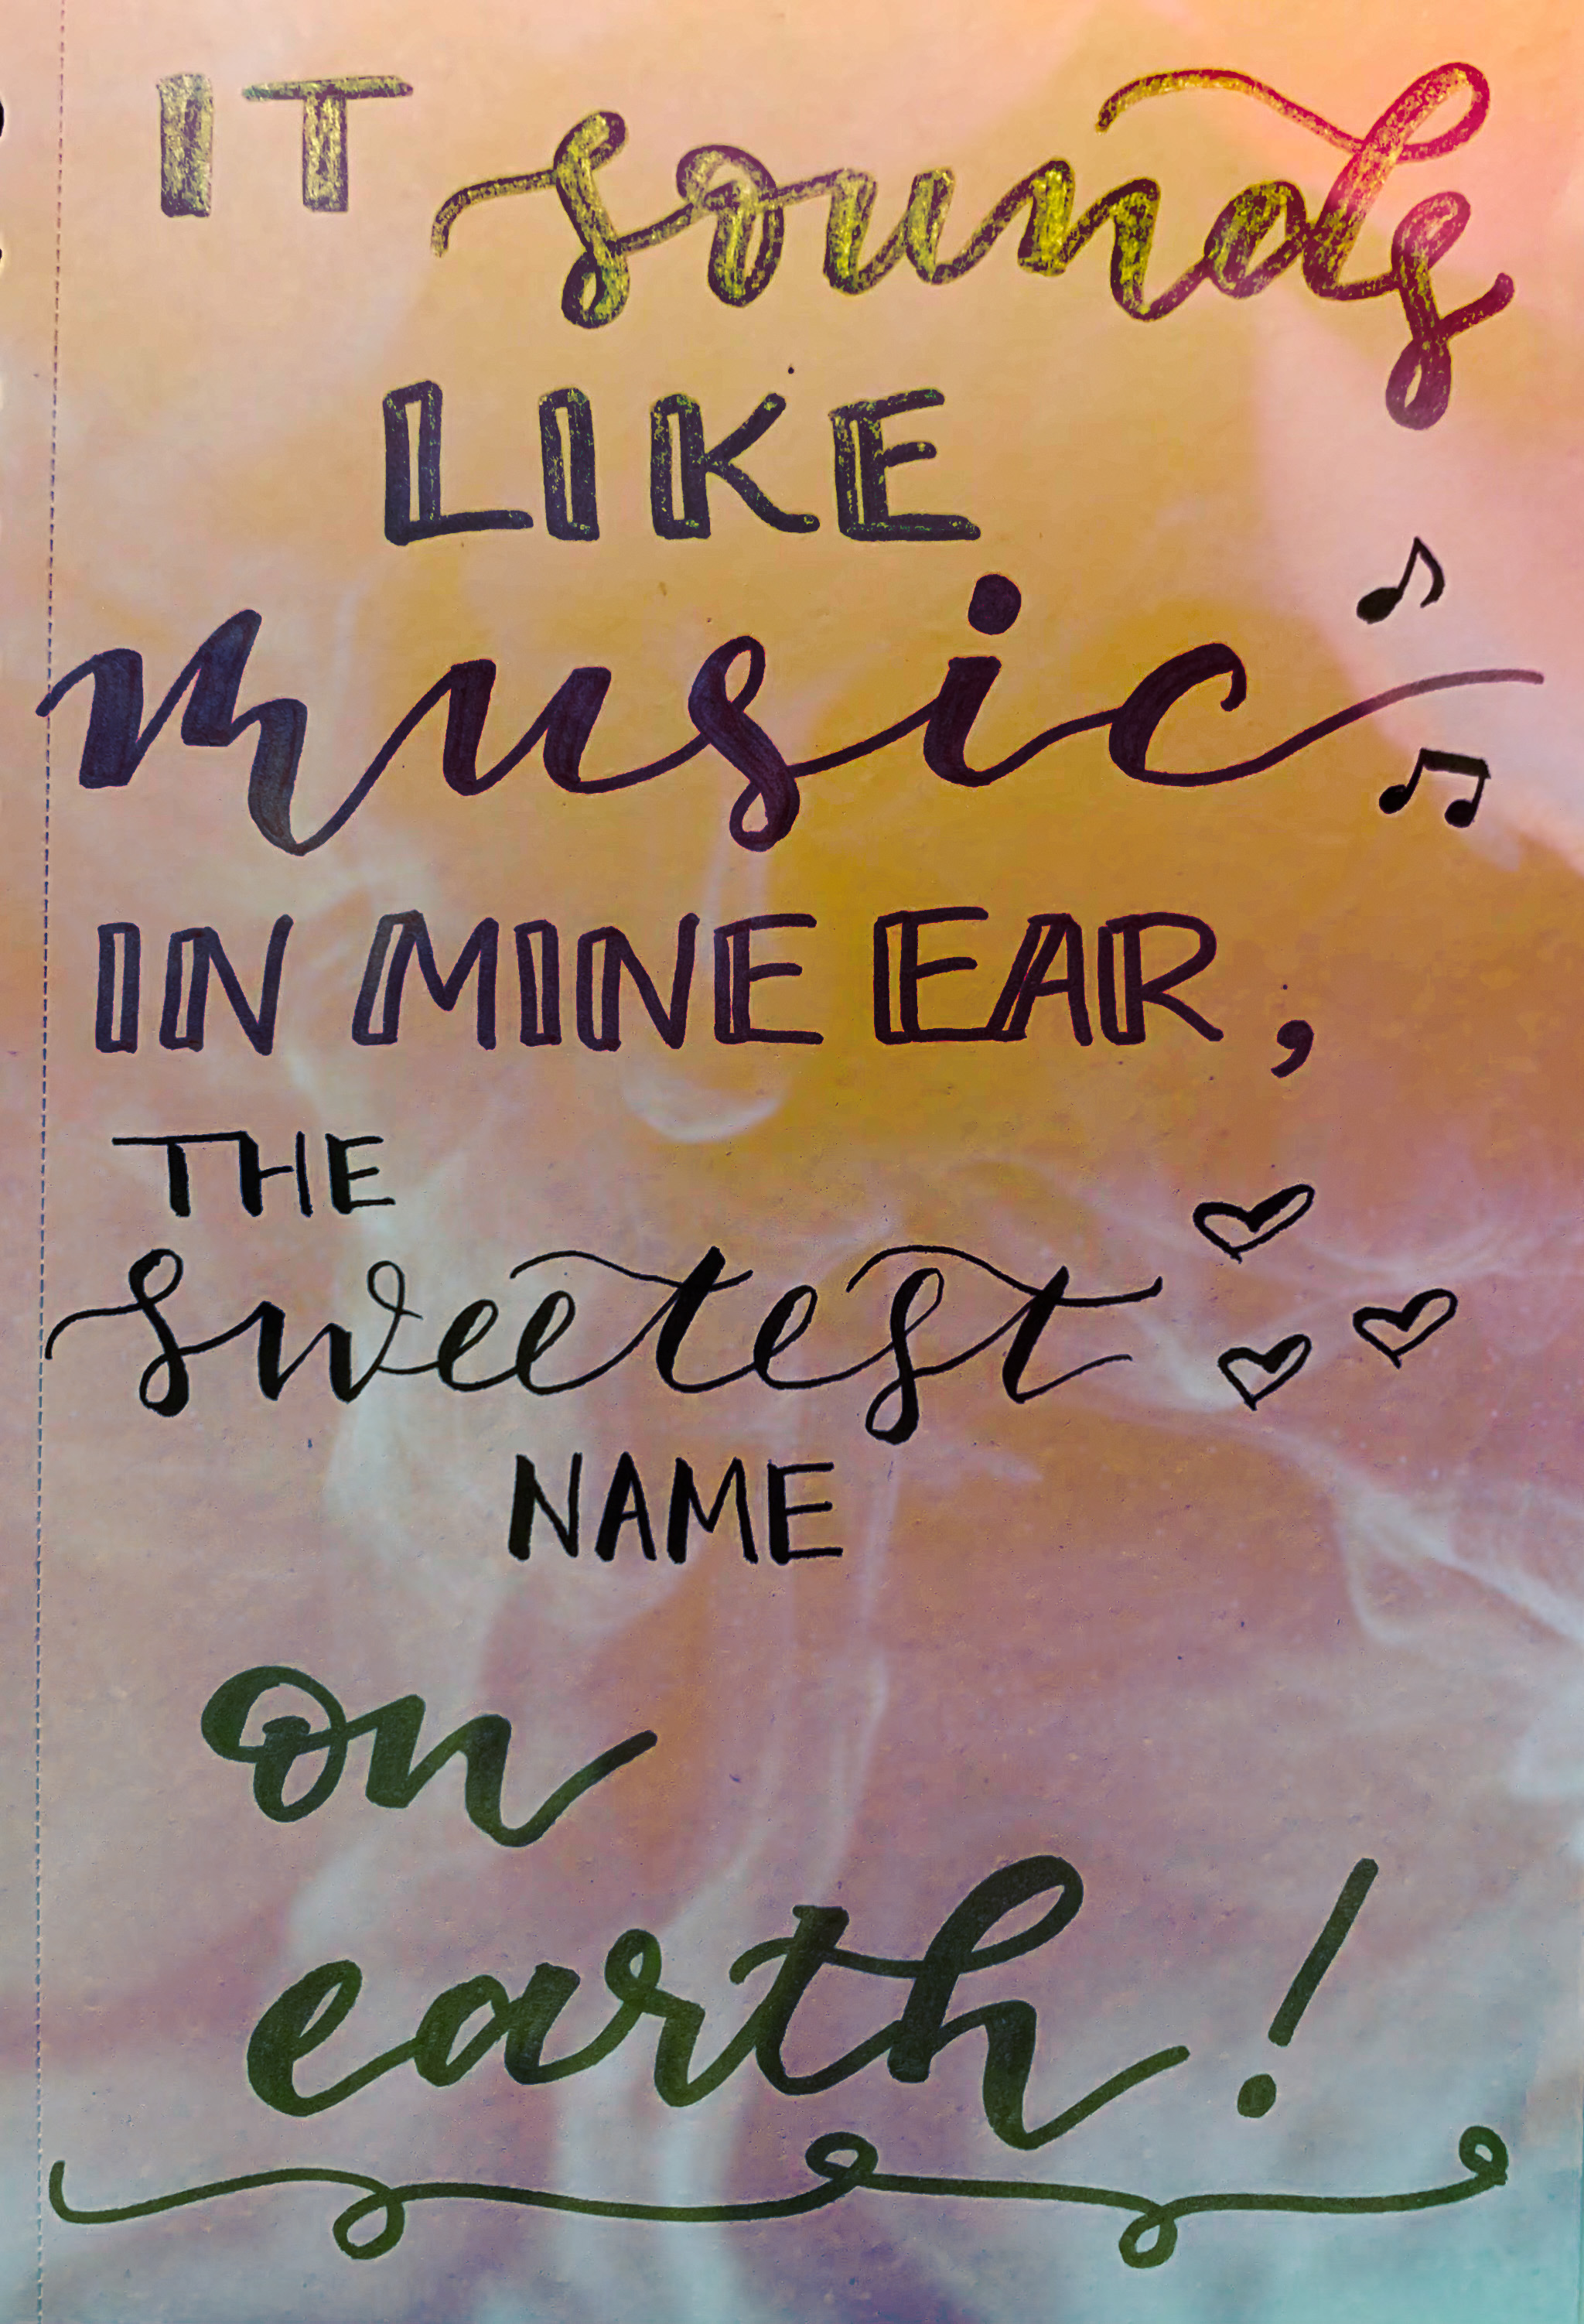 IT sounds
LIKE
music
IN MINE EAR,
THE
sweetest
NAME
on
earth!